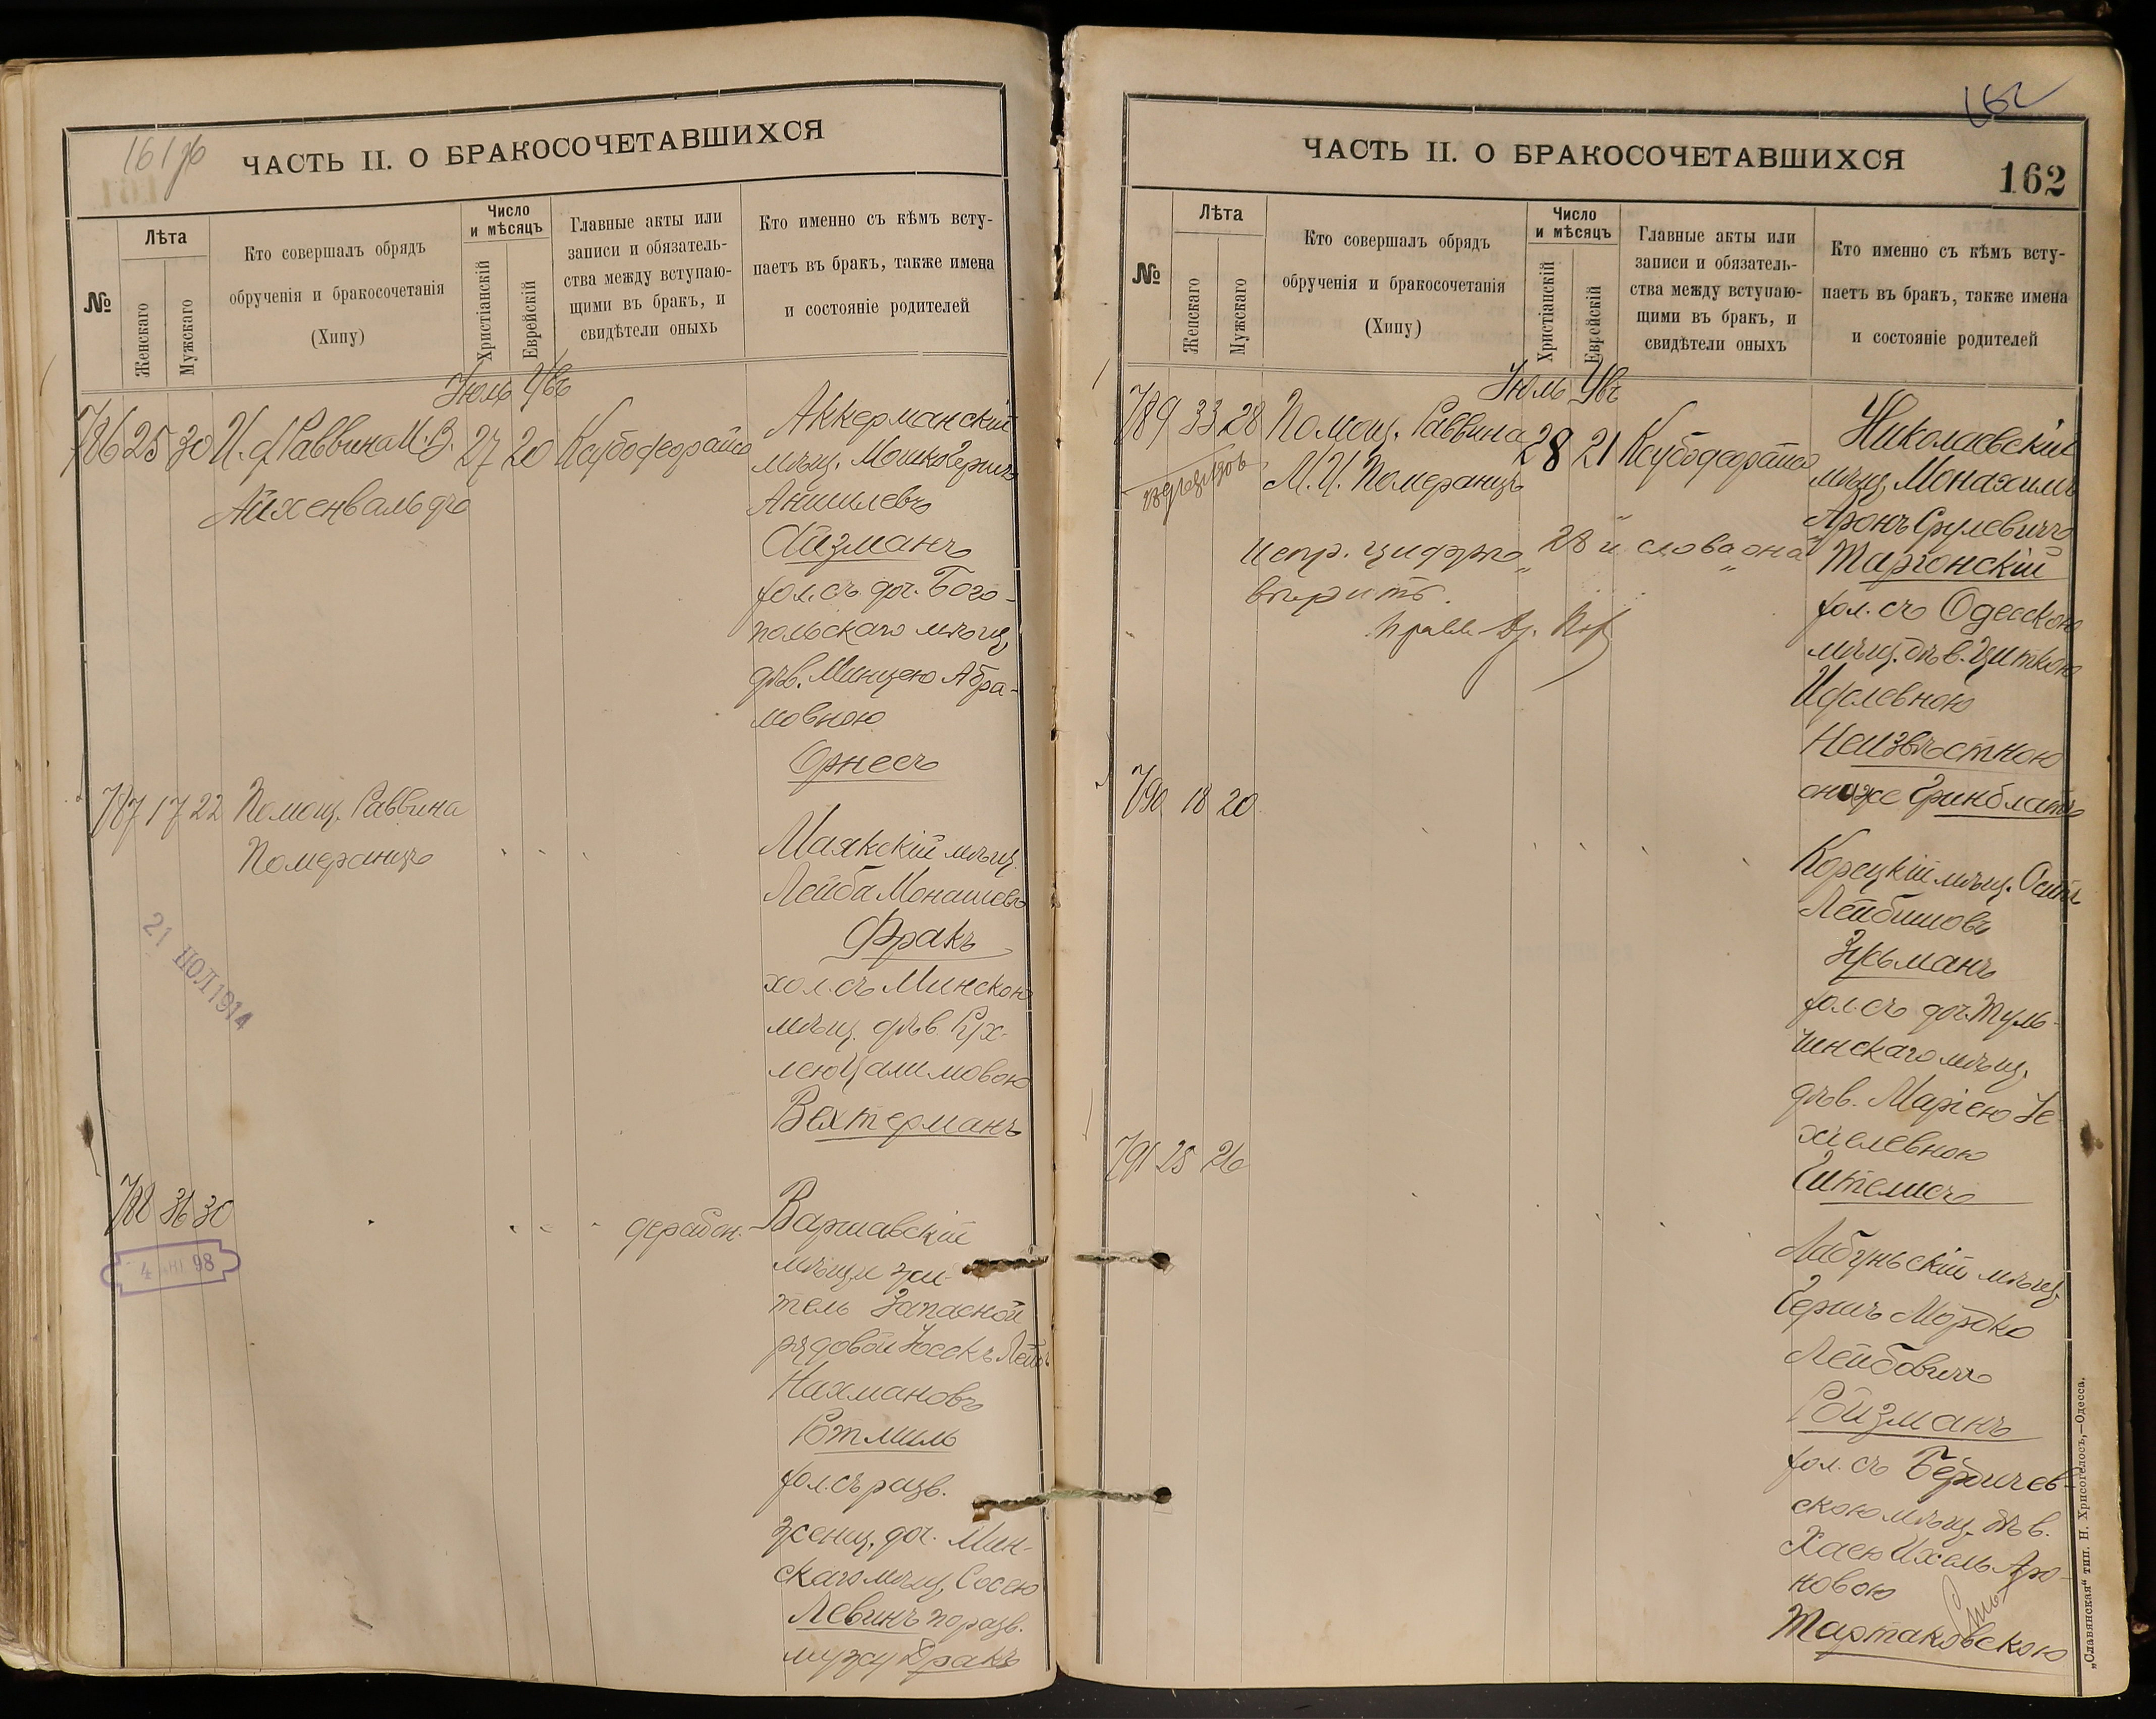 161 об
ЧАСТЬ II. О БРАКОСОЧЕТАВШИХСЯ
№
Лѣта
Женскаго
Мужскаго
Кто совершалъ обрядъ
обрученія и бракосочетанія
(Хипу)
Число
и мѣсяцъ
Христіанскій
Еврейскій
Главные акты или
записи и обязатель-
ства между вступаю-
щими въ бракъ, и
свидѣтели оныхъ
Кто именно съ кѣмъ всту-
паетъ въ бракъ, также имена
и состояніе родителей
Іюль Увъ
786 25 30 И. д. Раввина И. В. 27 20
Айхенвальдъ
Аккерманскій
мѣщ. Мошко Гершъ
Аншелевъ
Айзманъ
хол. съ доч. Бого-
польскаго мѣщ.
дѣв. Минцею Абра-
мовною
Орнесъ
787 17 22 Помощ. Раввина
Померанцъ
Маякскій мѣщ.
Лейба Монашевъ
Фракъ
хол. съ Минскою
мѣщ. дѣв. Рух-
лею Цалимовою
Вехтерманъ
21 ІЮЛ 1914
788 36 30
4 98
Варшавскій
жи-
тель Запасной
рядовой Іосекъ
Нахмановъ
Ротмиль
хол. съ разв.
женщ. доч. Мин-
скаго мѣщ. Сосею
Левинъ по разв.
мужу Дракъ
162
ЧАСТЬ II. О БРАКОСОЧЕТАВШИХСЯ
162
№
Лѣта
Женскаго
Мужскаго
Кто совершалъ обрядъ
обрученія и бракосочетанія
(Хипу)
Число
и мѣсяцъ
Христіанскій
Еврейскій
Главные акты или
записи и обязатель-
ства между вступаю-
щими въ бракъ, и
свидѣтели оныхъ
Кто именно съ кѣмъ всту-
паетъ въ бракъ, также имена
и состояніе родителей
Іюль Увъ
789 33 28 Помощ. Раввина 28 21
М. И. Померанцъ
испр. цифра „28“ и слова „она“
вѣрить.
Николаевскій
мѣщ. Монахимъ
Аронъ Срулевичъ
Таргонскій
хол. съ Одесскою
мѣщ. дѣв. Циткою
Иделевною
Неизвѣстною
онаже Гринблатъ
790 18 20
Корецкій мѣщ.
Лейбишовъ
Зусьманъ
хол. съ доч. Туль-
чинскаго мѣщ.
дѣв. Маріею Іе-
хіелевною
Гительисъ
791 25 26
Лабуньскій мѣщ.
Гершъ Мордко
Лейбовичъ
Ройзманъ
хол. съ Бердичев-
скою мѣщ. дѣв.
Хаею Ихель Аро-
новою
Тартаковскою
„Славянская“ тип. Н. Хрисогелосъ,—Одесса.